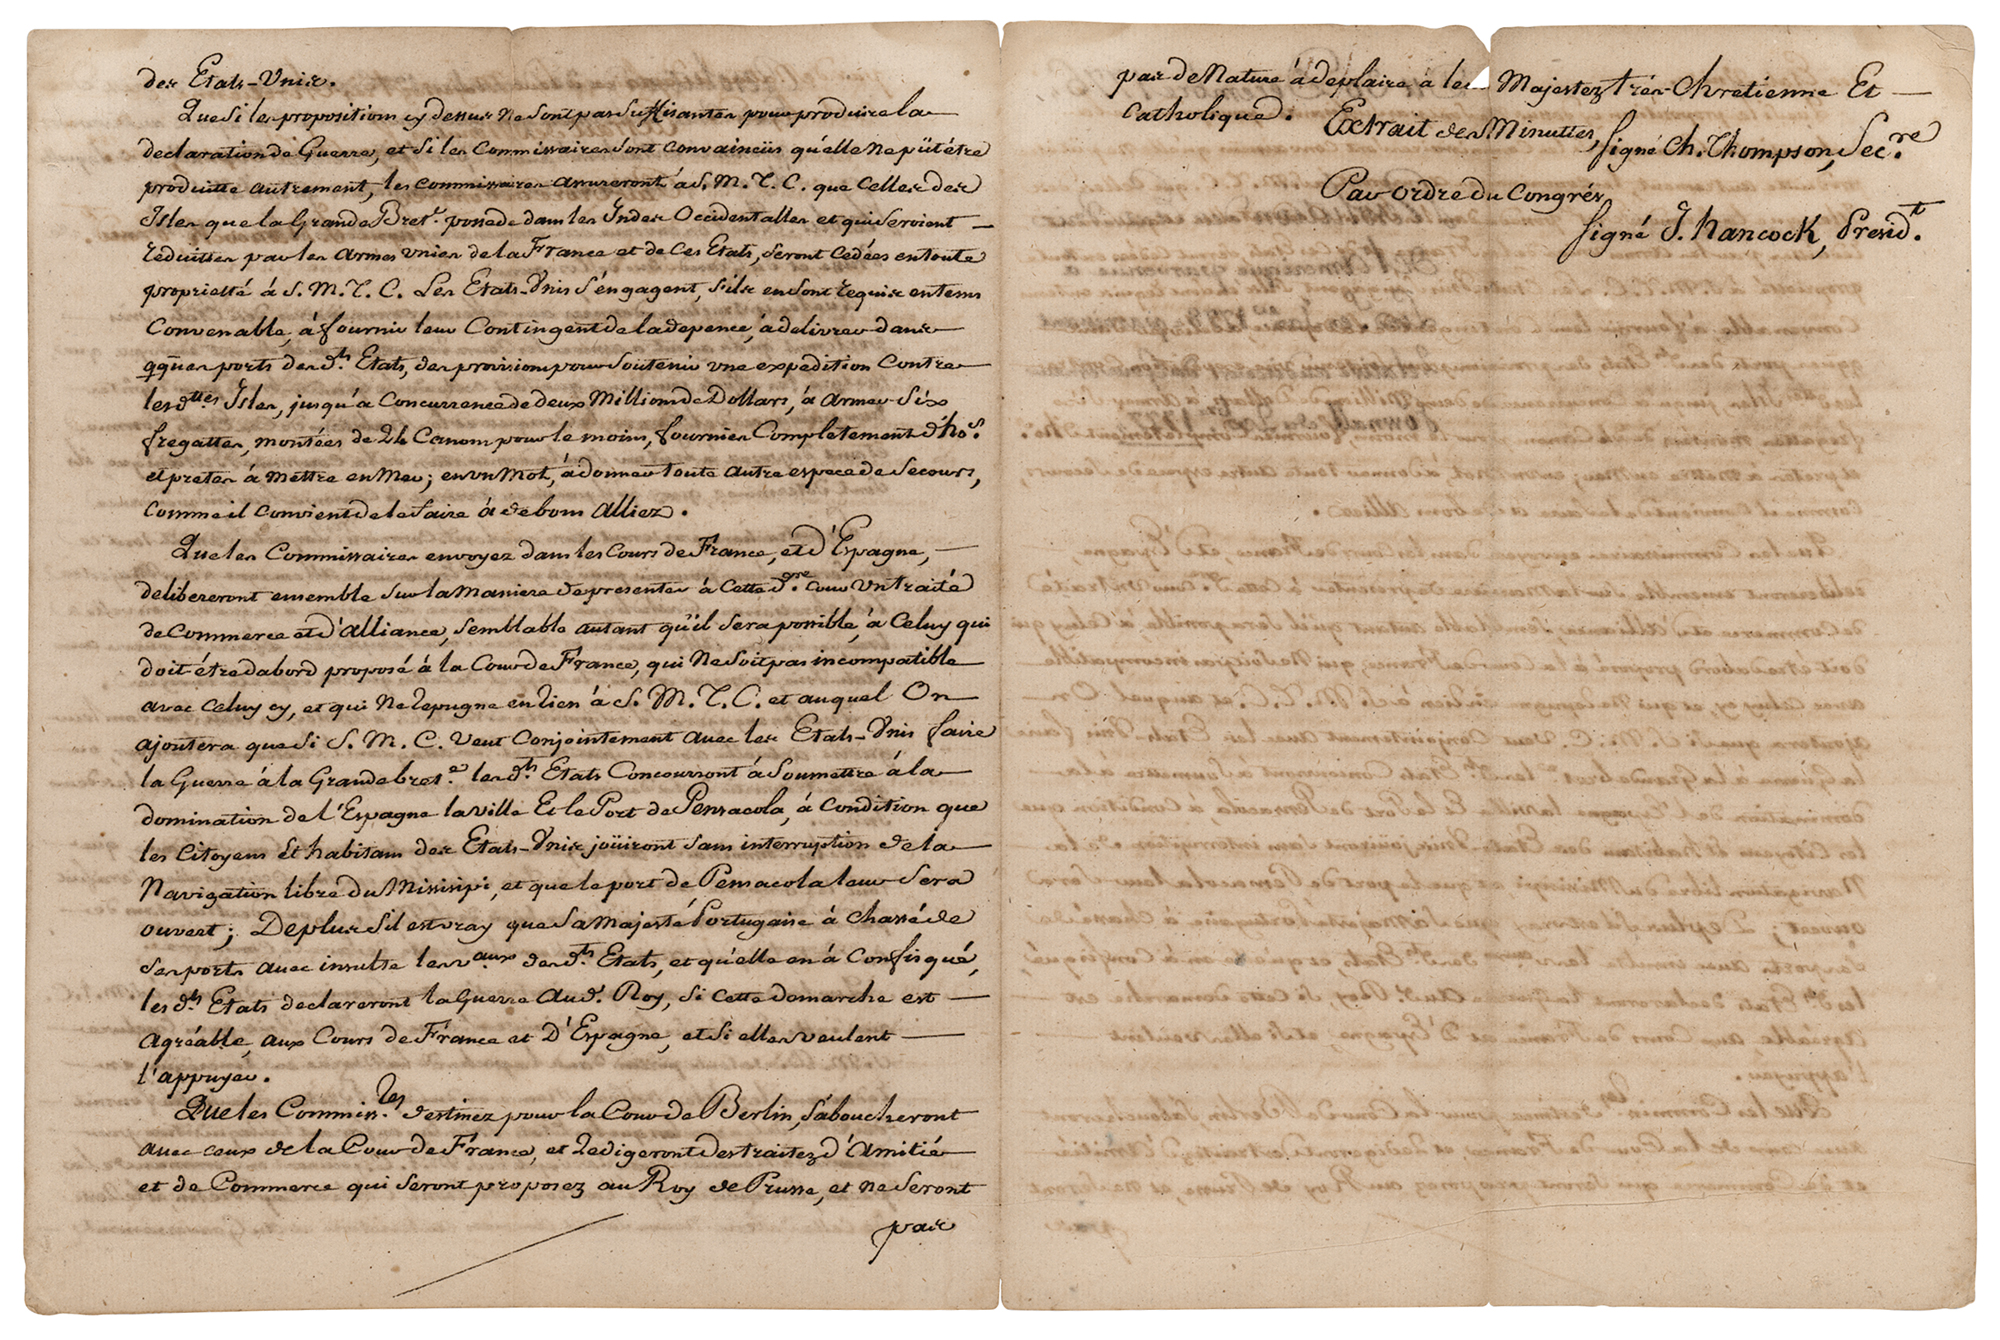 des Etats-Unis.
Que si les propositions cy dessus ne sont pas suffisantes pour produire la
declaration de Guerre, et si les Commissaires sont convaincüs qu'elle ne püt être
produitte autrement, les commissaires assureront à S. M. T. C. que celles des
Isles que la Grande Bret.e possede dans les Indes Occidentalles et qui seroient —
réduittes par les Armes unies de la France et de Ces Etats, seront cedées en toute
proprietté à S. M. T. C. Les Etats-Unis s'engagent, s'ils en sont requis en tems
Convenable, à fournir leur Contingent de la depence, à delivrer dans
qques ports des d.ts Etats, des provisions pour soutenir une expédition Contre
les d.ttes Isles, jusqu'à Concurrence de deux Millions de Dollars, à Armer Six
fregattes, montées de 24 Canons pour le moins, fournies Completement d'ho.s
et pretes à mettre en Mer; en un Mot, à donner toute autre espece de Secours,
comme il convient de le faire à de bons Alliez.
Que les Commissaires envoyez dans les Cours de France, et d'Espagne, —
delibereront ensemble sur la maniere de presenter à Cette d.re cour un traité
de Commerce et d'Alliance, semblable autant qu'il sera possible, à Celuy qui
doit être dabord proposé à la Cour de France, qui ne soit pas incompatible
avec celuy cy, et qui ne repugne en rien à S. M. T. C. et auquel On
ajoutera que si S. M. C. veut Conjointement avec les Etats-Unis faire
la Guerre à la Grande bret.e les d.ts Etats Concourront à Soumettre à la
domination de l'Espagne la ville Et le Port de Pensacola, à condition que
les Citoyens Et habitans des Etats-Unis joüiront sans interruption de la
Navigation libre du Missisipi, et que le port de Pensacola leur Sera
ouvert; De plus s'il est vray que Sa Majesté Portugaise à chassé de
ses ports avec insulte les v.aux des d.ts Etats, et qu'elle en à Confisqué,
les d.ts Etats declareront la Guerre Au d. Roy, si cette demarche est —
Agréable, aux Cours de France et D'Espagne, et si elles veulent —
l'appuyer.
Que les Commiss.res destinez pour la Cour de Berlin, s'aboucheront
avec ceux de la Cour de France, et redigeront des traitez d'Amitié
et de Commerce qui seront proposez au Roy de Prusse, et ne seront
pas
pas de Nature à deplaire à les Majestez très-Chretienne Et —
Catholique.
Extrait des Minuttes,
signé Ch. Thompson, Sec.re
Par ordre du Congrés,
signé J. Hancock, Presid.t